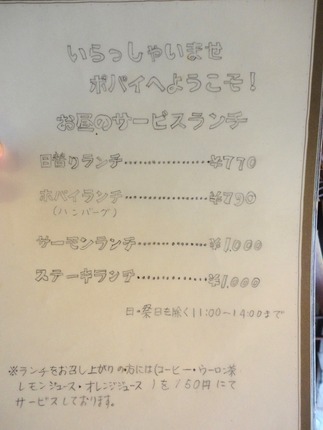 いらっしゃいませ
ポパイへようこそ!
お昼のサービスランチ
日替りランチ・・・・・・・・・・・・・・¥770
ポパイランチ・・・・・・・・・・・・・・¥790
(ハンバーグ)
サーモンランチ・・・・・・・・・・・・¥1,000
ステーキランチ・・・・・・・・・・・・¥1,000
日・祭日も除く11:00~14:00まで
※ランチをお召し上がりの方には(コーヒー・ウーロン茶
レモンジュース・オレンジジュース)を160円にて
サービスしております。